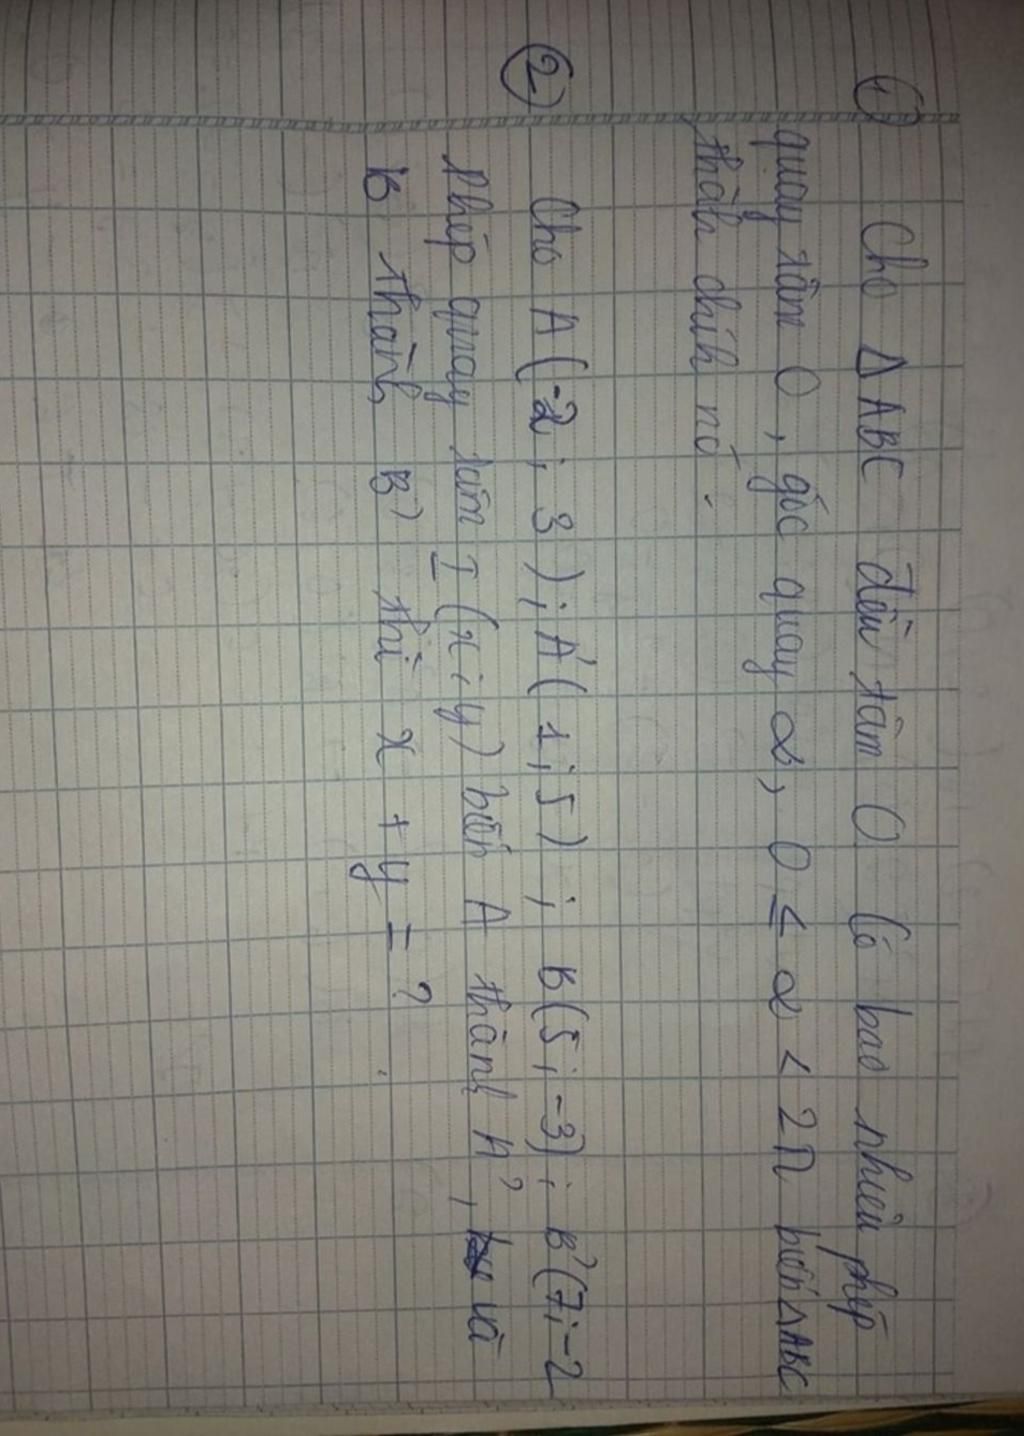 ① Cho Δ ABC đều tâm O. Có bao nhiêu phép
quay tâm O, góc quay α, 0 ≤ α < 2π biến Δ ABC
thành chính nó.
② Cho A(-2; 3); A'(1; 5); B(5; -3); B'(7; -2
Phép quay tâm I(x; y) biến A thành A', và
B thành B' thì x + y = ?